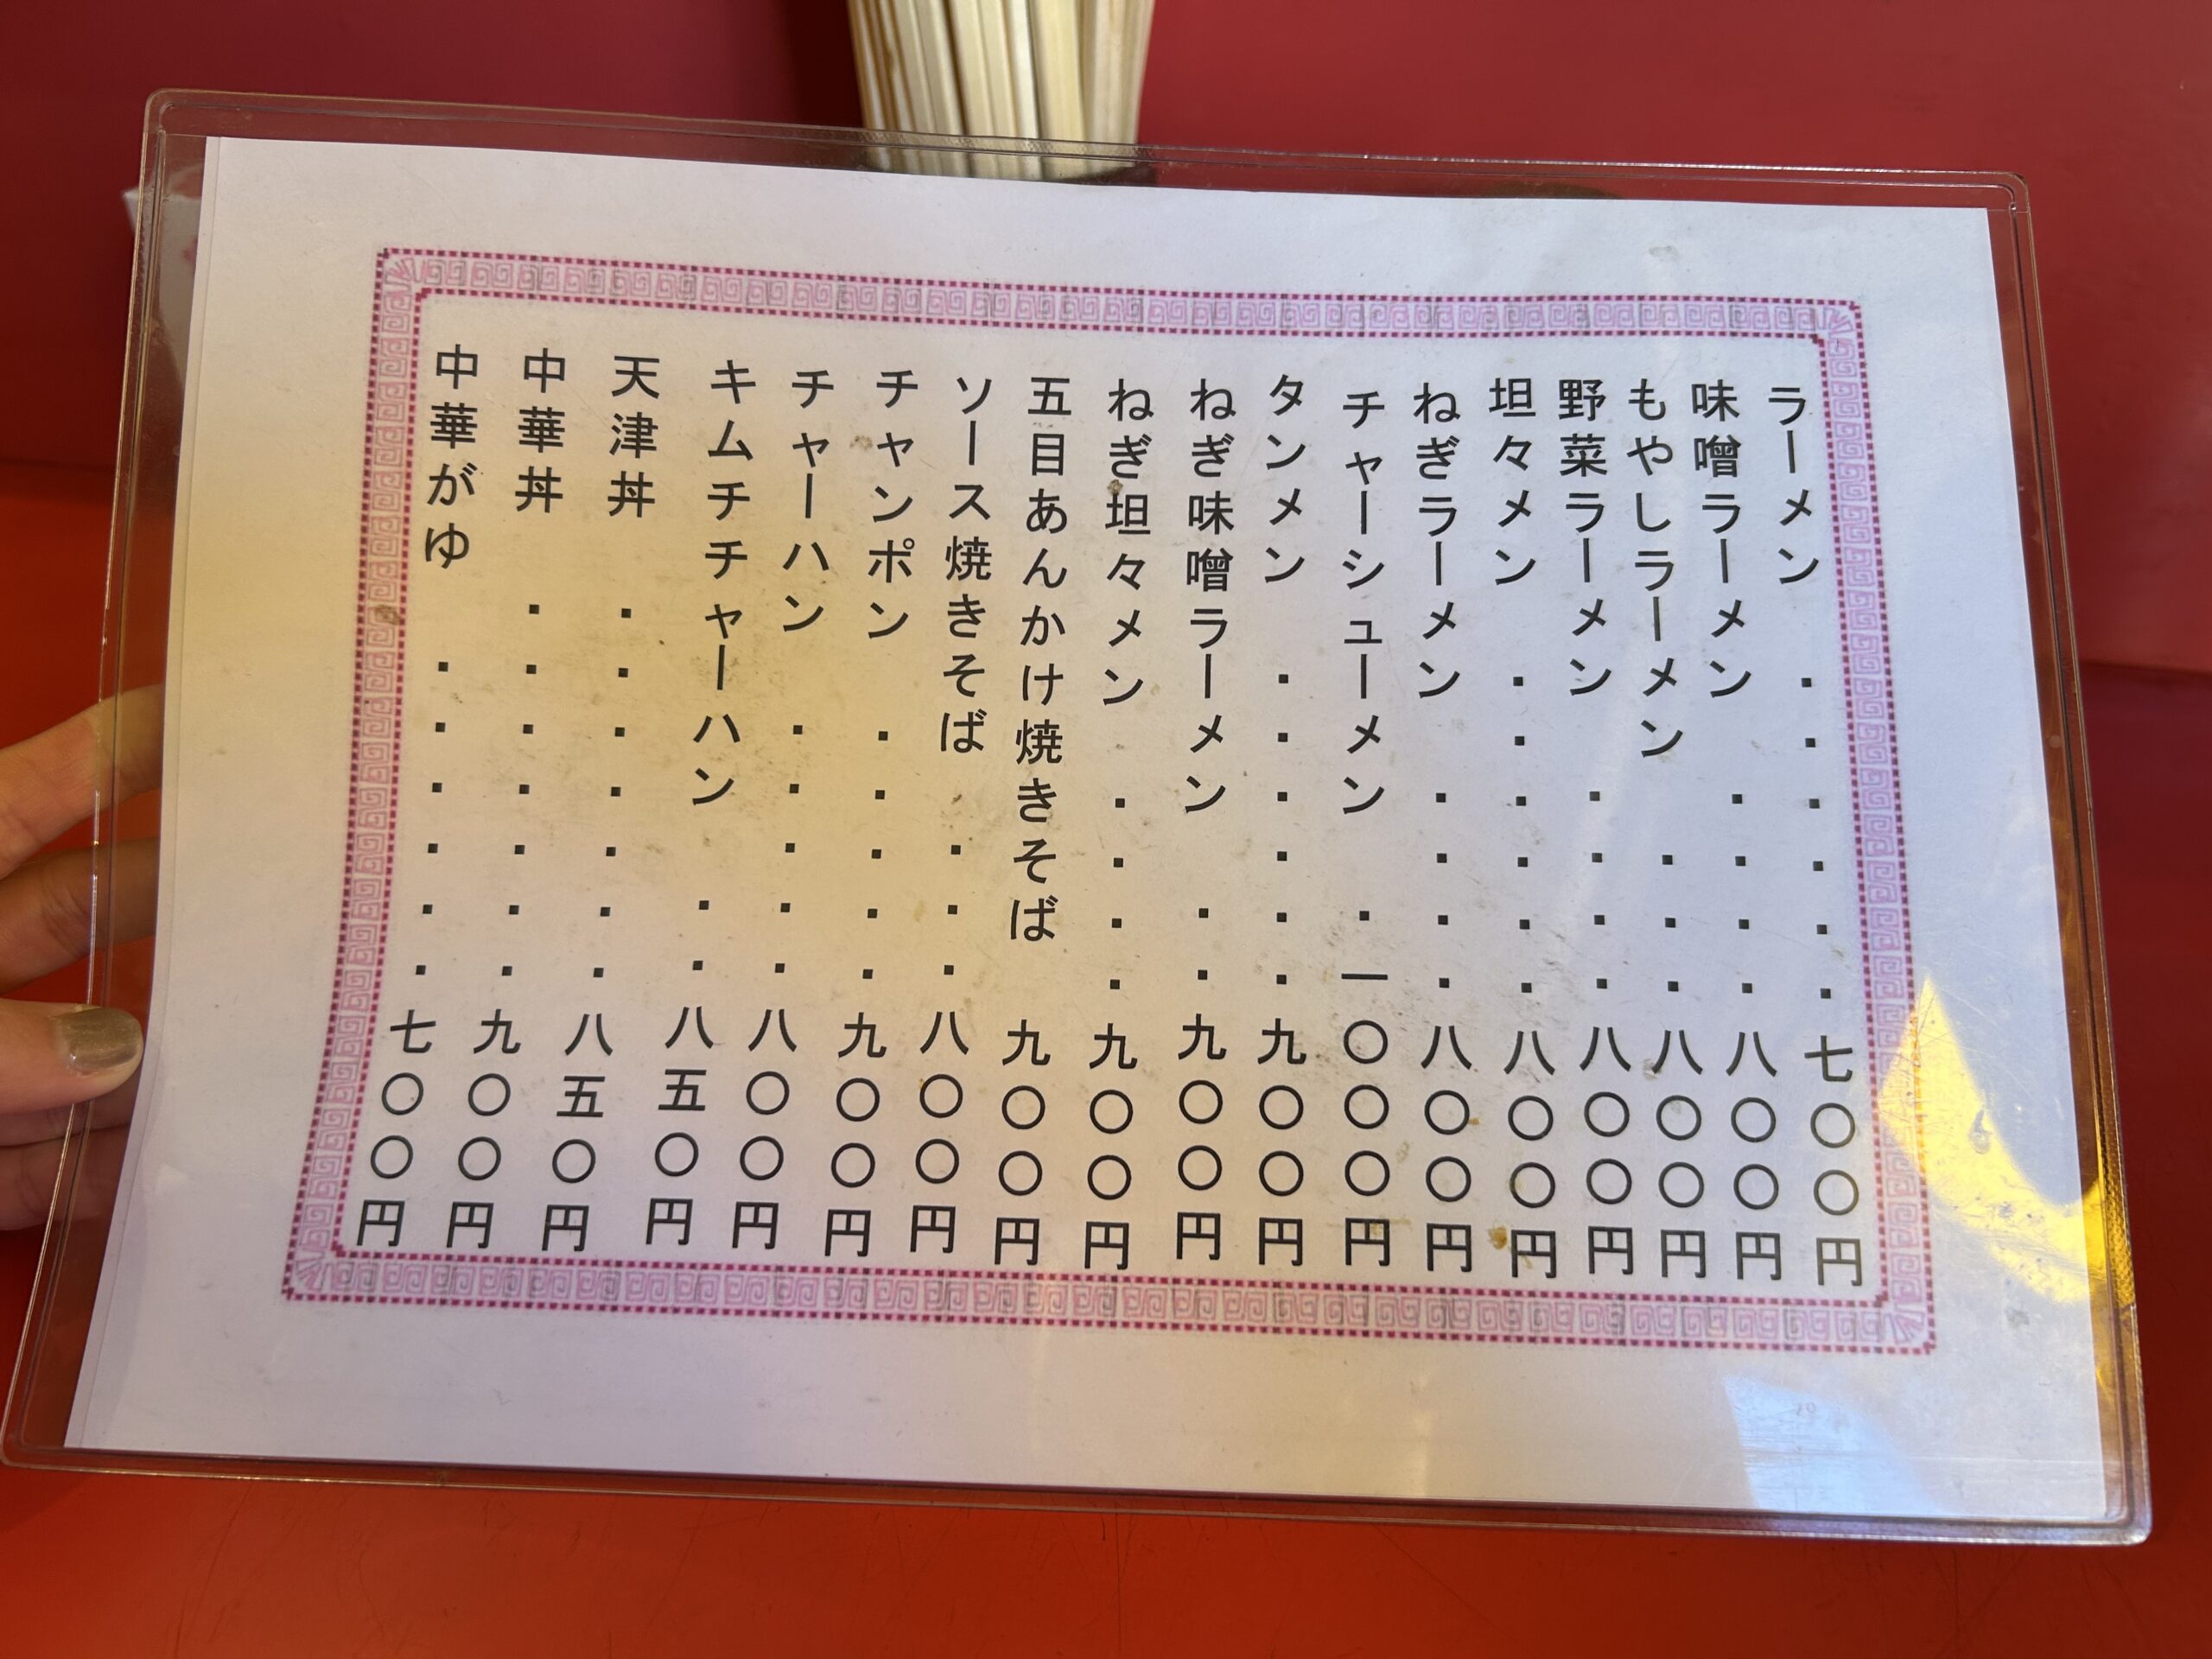 ラーメン・・・・・・七〇〇円
味噌ラーメン・・・・八〇〇円
もやしラーメン・・・八〇〇円
野菜ラーメン・・・・八〇〇円
坦々メン・・・・・・八〇〇円
ねぎラーメン・・・・八〇〇円
チャーシューメン・一〇〇〇円
タンメン・・・・・・九〇〇円
ねぎ味噌ラーメン・・九〇〇円
ねぎ坦々メン・・・・九〇〇円
五目あんかけ焼きそば九〇〇円
ソース焼きそば・・・八〇〇円
チャンポン・・・・・九〇〇円
チャーハン・・・・・八〇〇円
キムチチャーハン・・八五〇円
天津丼・・・・・・・八五〇円
中華丼・・・・・・・九〇〇円
中華がゆ・・・・・・七〇〇円